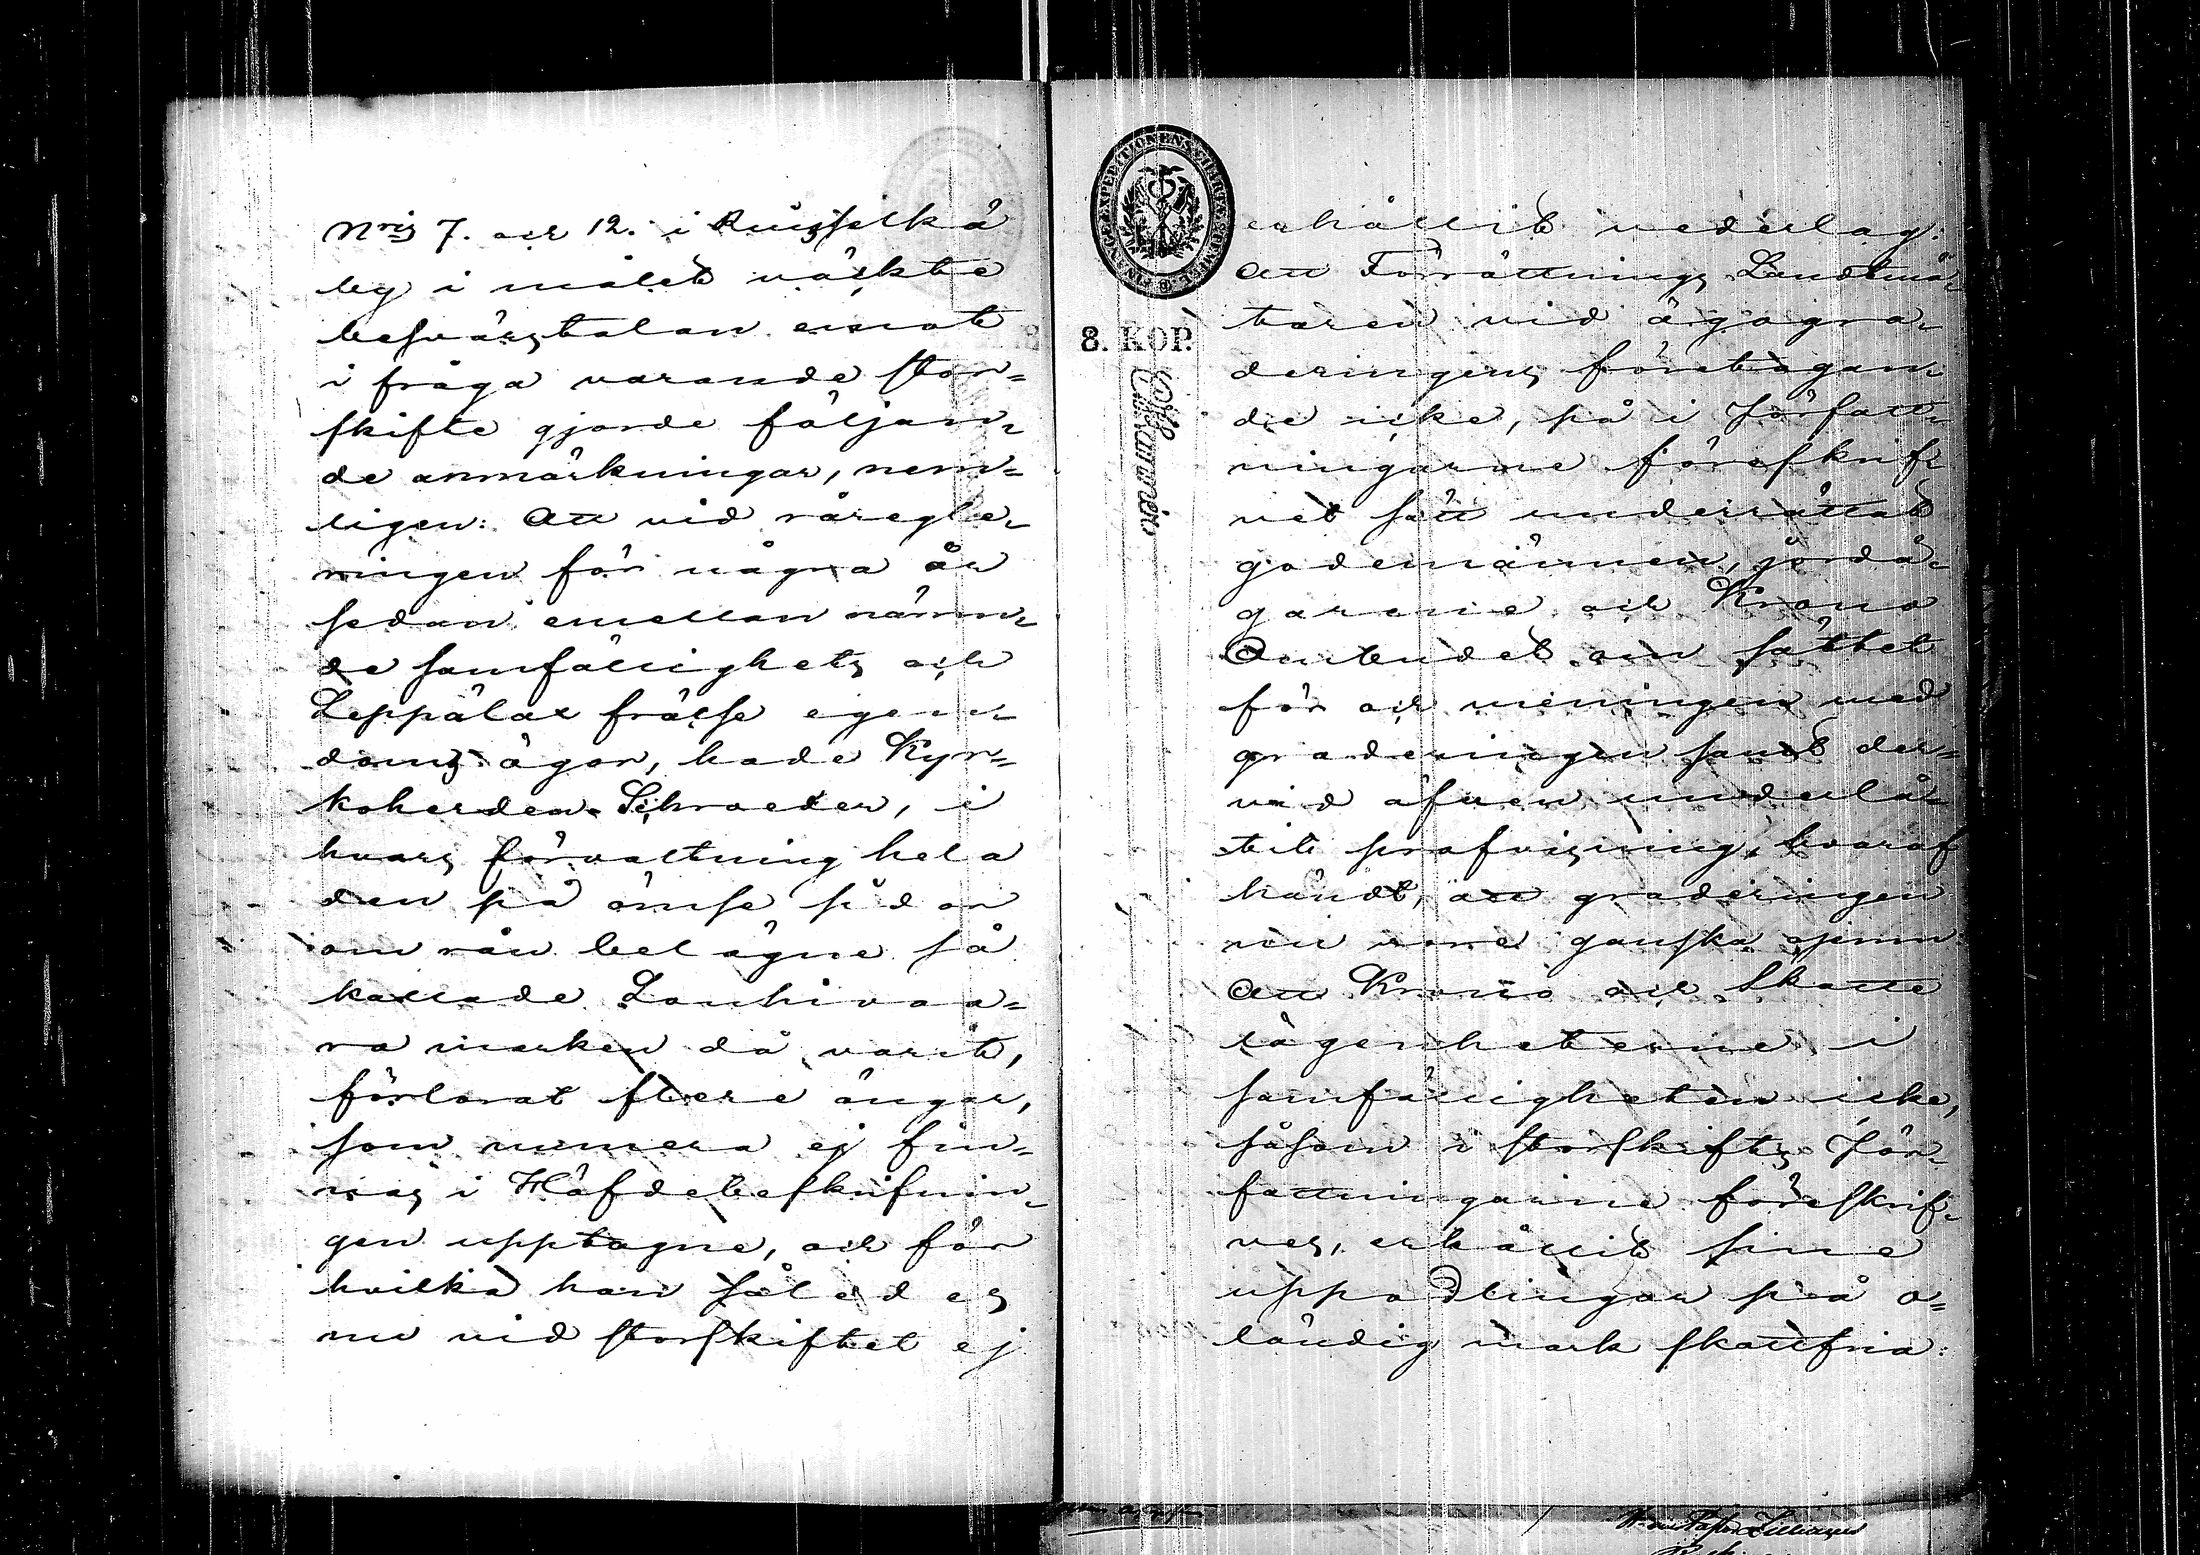 Nris 7. och 12. i Ruisselkä
by i målet väckte
besvärstalan emot
i fråga varande stor=
skifte gjorde följan=
de anmärkningar, nem=
ligen: Att vid råregle=
ringen för några år
sedan emellan nämn=
de samfällighets och
Leppälax frälse egen=
doms ägor, hade Kyr=
koherden Schroeder, i
hvars förvaltning hela
den på ömse sidor
om rån belägne så
kallade Louhivaa=
ra marken då varit,
förlorat flere ängar,
som numera ej fin=
nas i Häfdebeskrifnin=
gen upptagne, och för
hvilka han således
nu vid storskiftet ej
8. KOP.
erhållit vederlag:
Att Förrättnings Landtmä=
taren vid ägogra=
deringens företagan=
de icke, på i författ=
ningarne föreskrif=
vet sätt underrättat
godemännen, jordä=
garene och Krono
Ombudet om sättet
för och meningen med
graderingen samt der=
vid äfven underlå=
tit profvisning, hvaraf
händt, att graderingen
nu vore ganska ojemn
Att Krono och Skatte
lägenheterne i
samfälligheten icke,
såsom i storskifts för=
fattningarne föreskrif=
ves, erhållit sine
uppodlingar på o=
ländig mark skattfria: